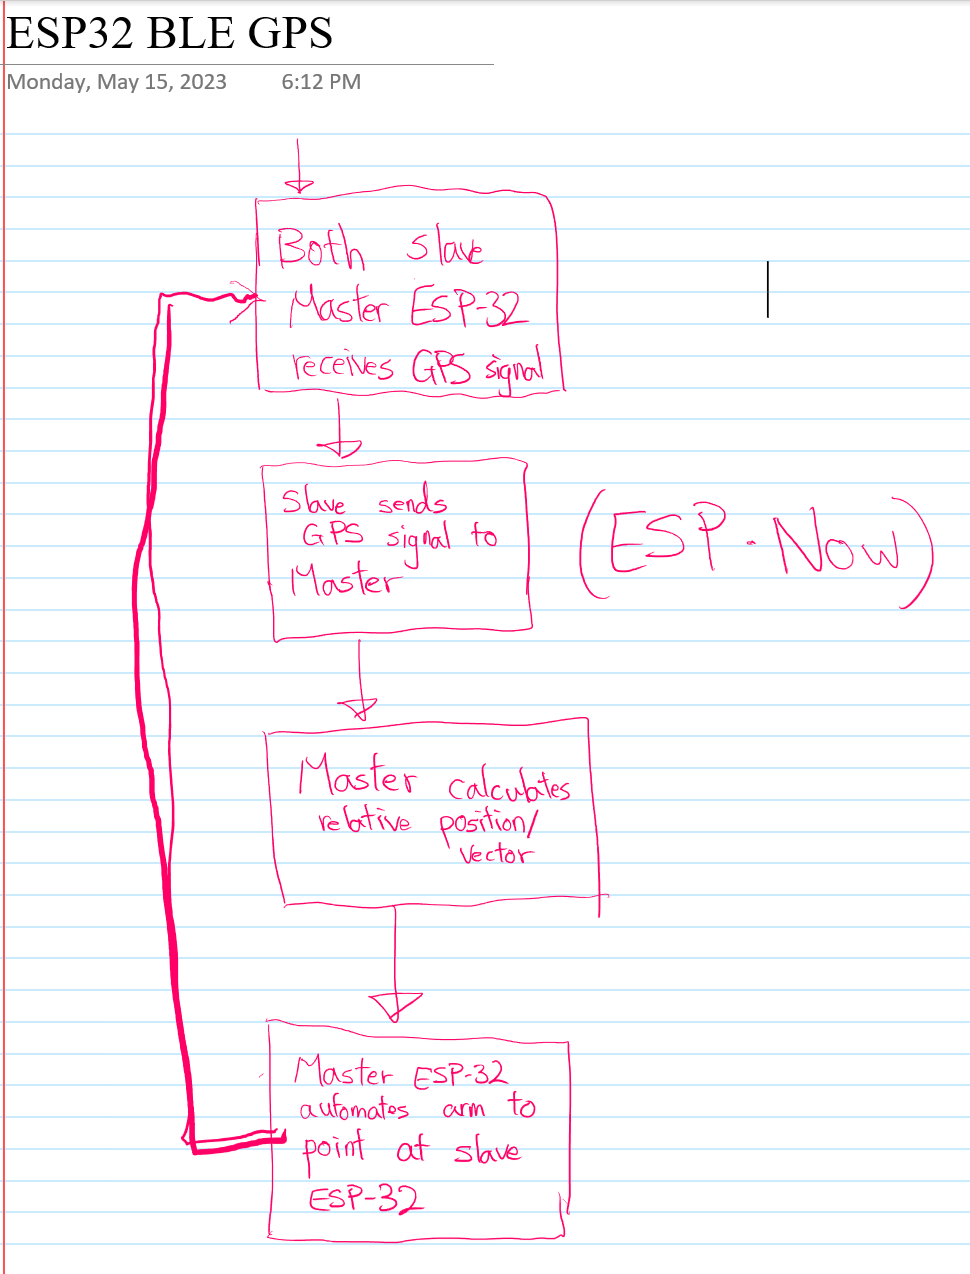 ESP32 BLE GPS
Monday, May 15, 2023 6:12 PM
Both slave
Master ESP-32
receives GPS signal
Slave sends
GPS signal to
Master
(ESP-Now)
Master calculates
relative position/
vector
Master ESP-32
automates arm to
point at slave
ESP-32